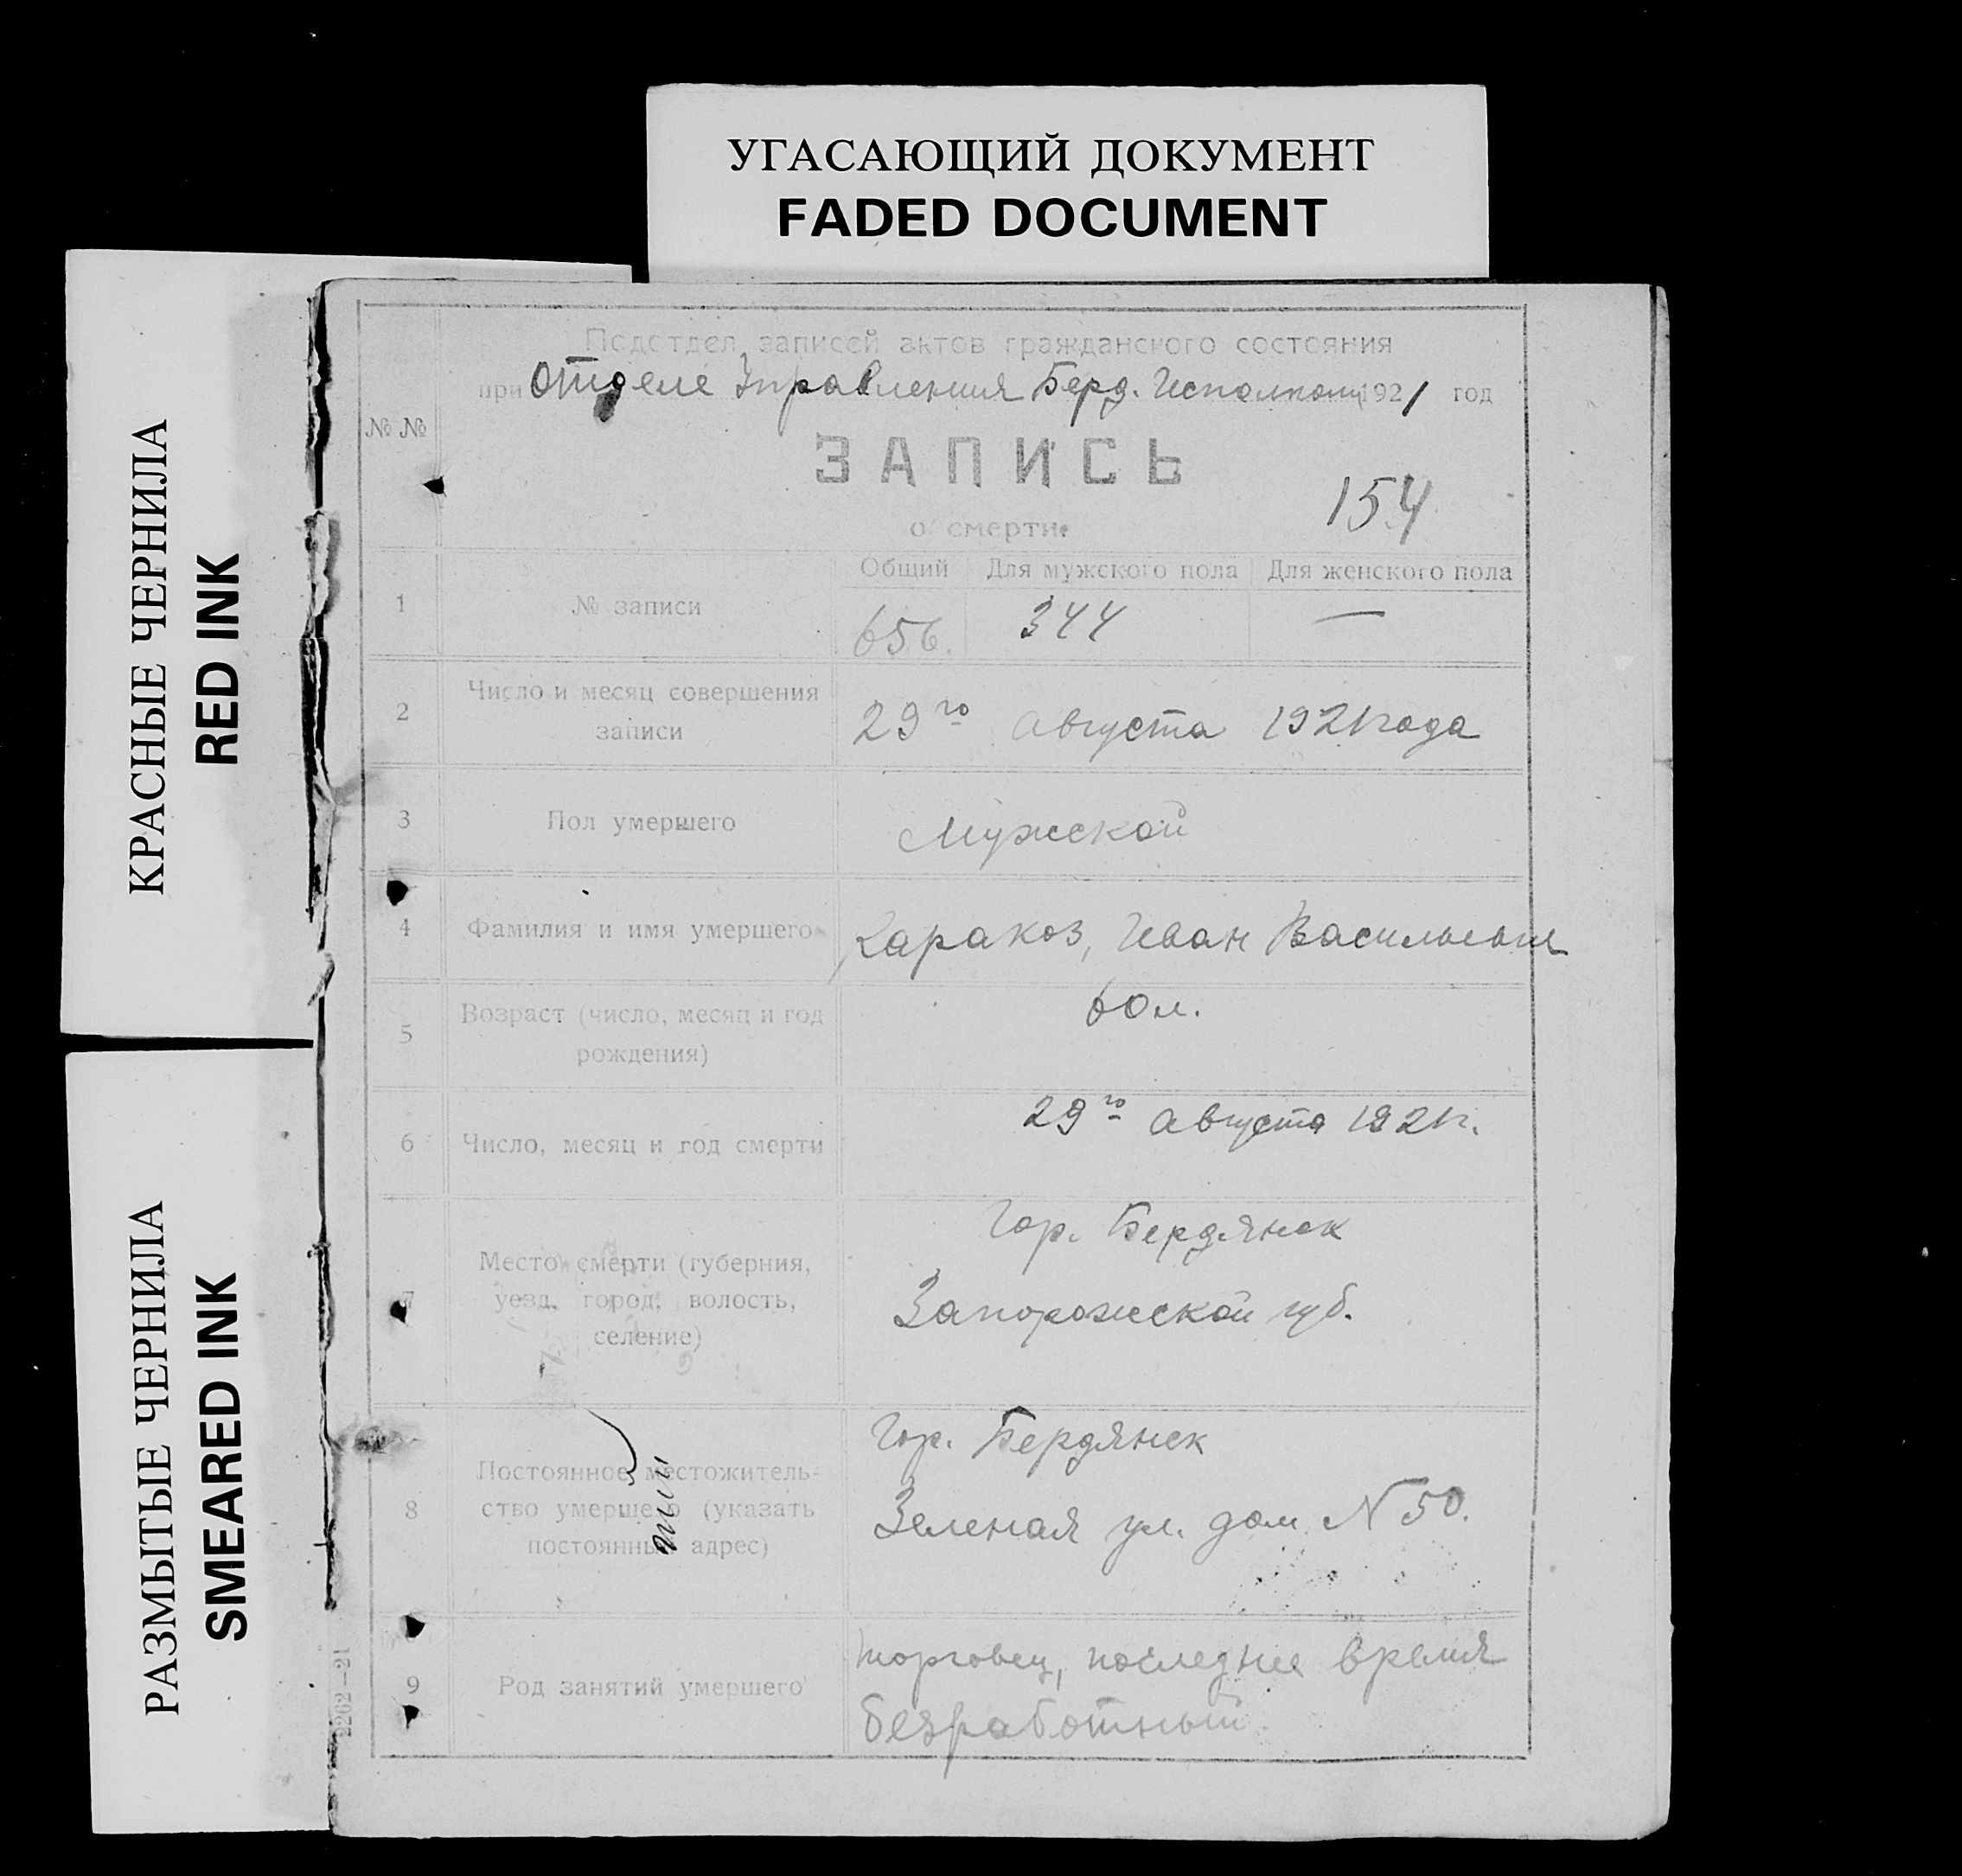 УГАСАЮЩИЙ ДОКУМЕНТ
FADED DOCUMENT
КРАСНЫЕ ЧЕРНИЛА
RED INK
РАЗМЫТЫЕ ЧЕРНИЛА
SMEARED INK
Подотдел записей актов гражданского состояния
при Отделе Управления Берд. Исполкома 1921 год
№ №
ЗАПИСЬ
154
о смерти.
Общий Для мужского пола Для женского пола
1 № записи 656. 344 —
2 Число и месяц совершения
записи
29го Августа 1921 года
3 Пол умершего Мужской
4 Фамилия и имя умершего Каракоз, Иван Васильевич
5 Возраст (число, месяц и год
рождения)
60 л.
6 Число, месяц и год смерти 29го Августа 1921 г.
7 Место смерти (губерния,
уезд, город, волость,
селение)
Гор. Бердянск
Запорожской губ.
8 Постоянное местожитель-
ство умершего (указать
постоянный адрес)
Гор. Бердянск
Зеленая ул. дом N 50.
9 Род занятий умершего
торговец, последнее время
безработный.
2262—21